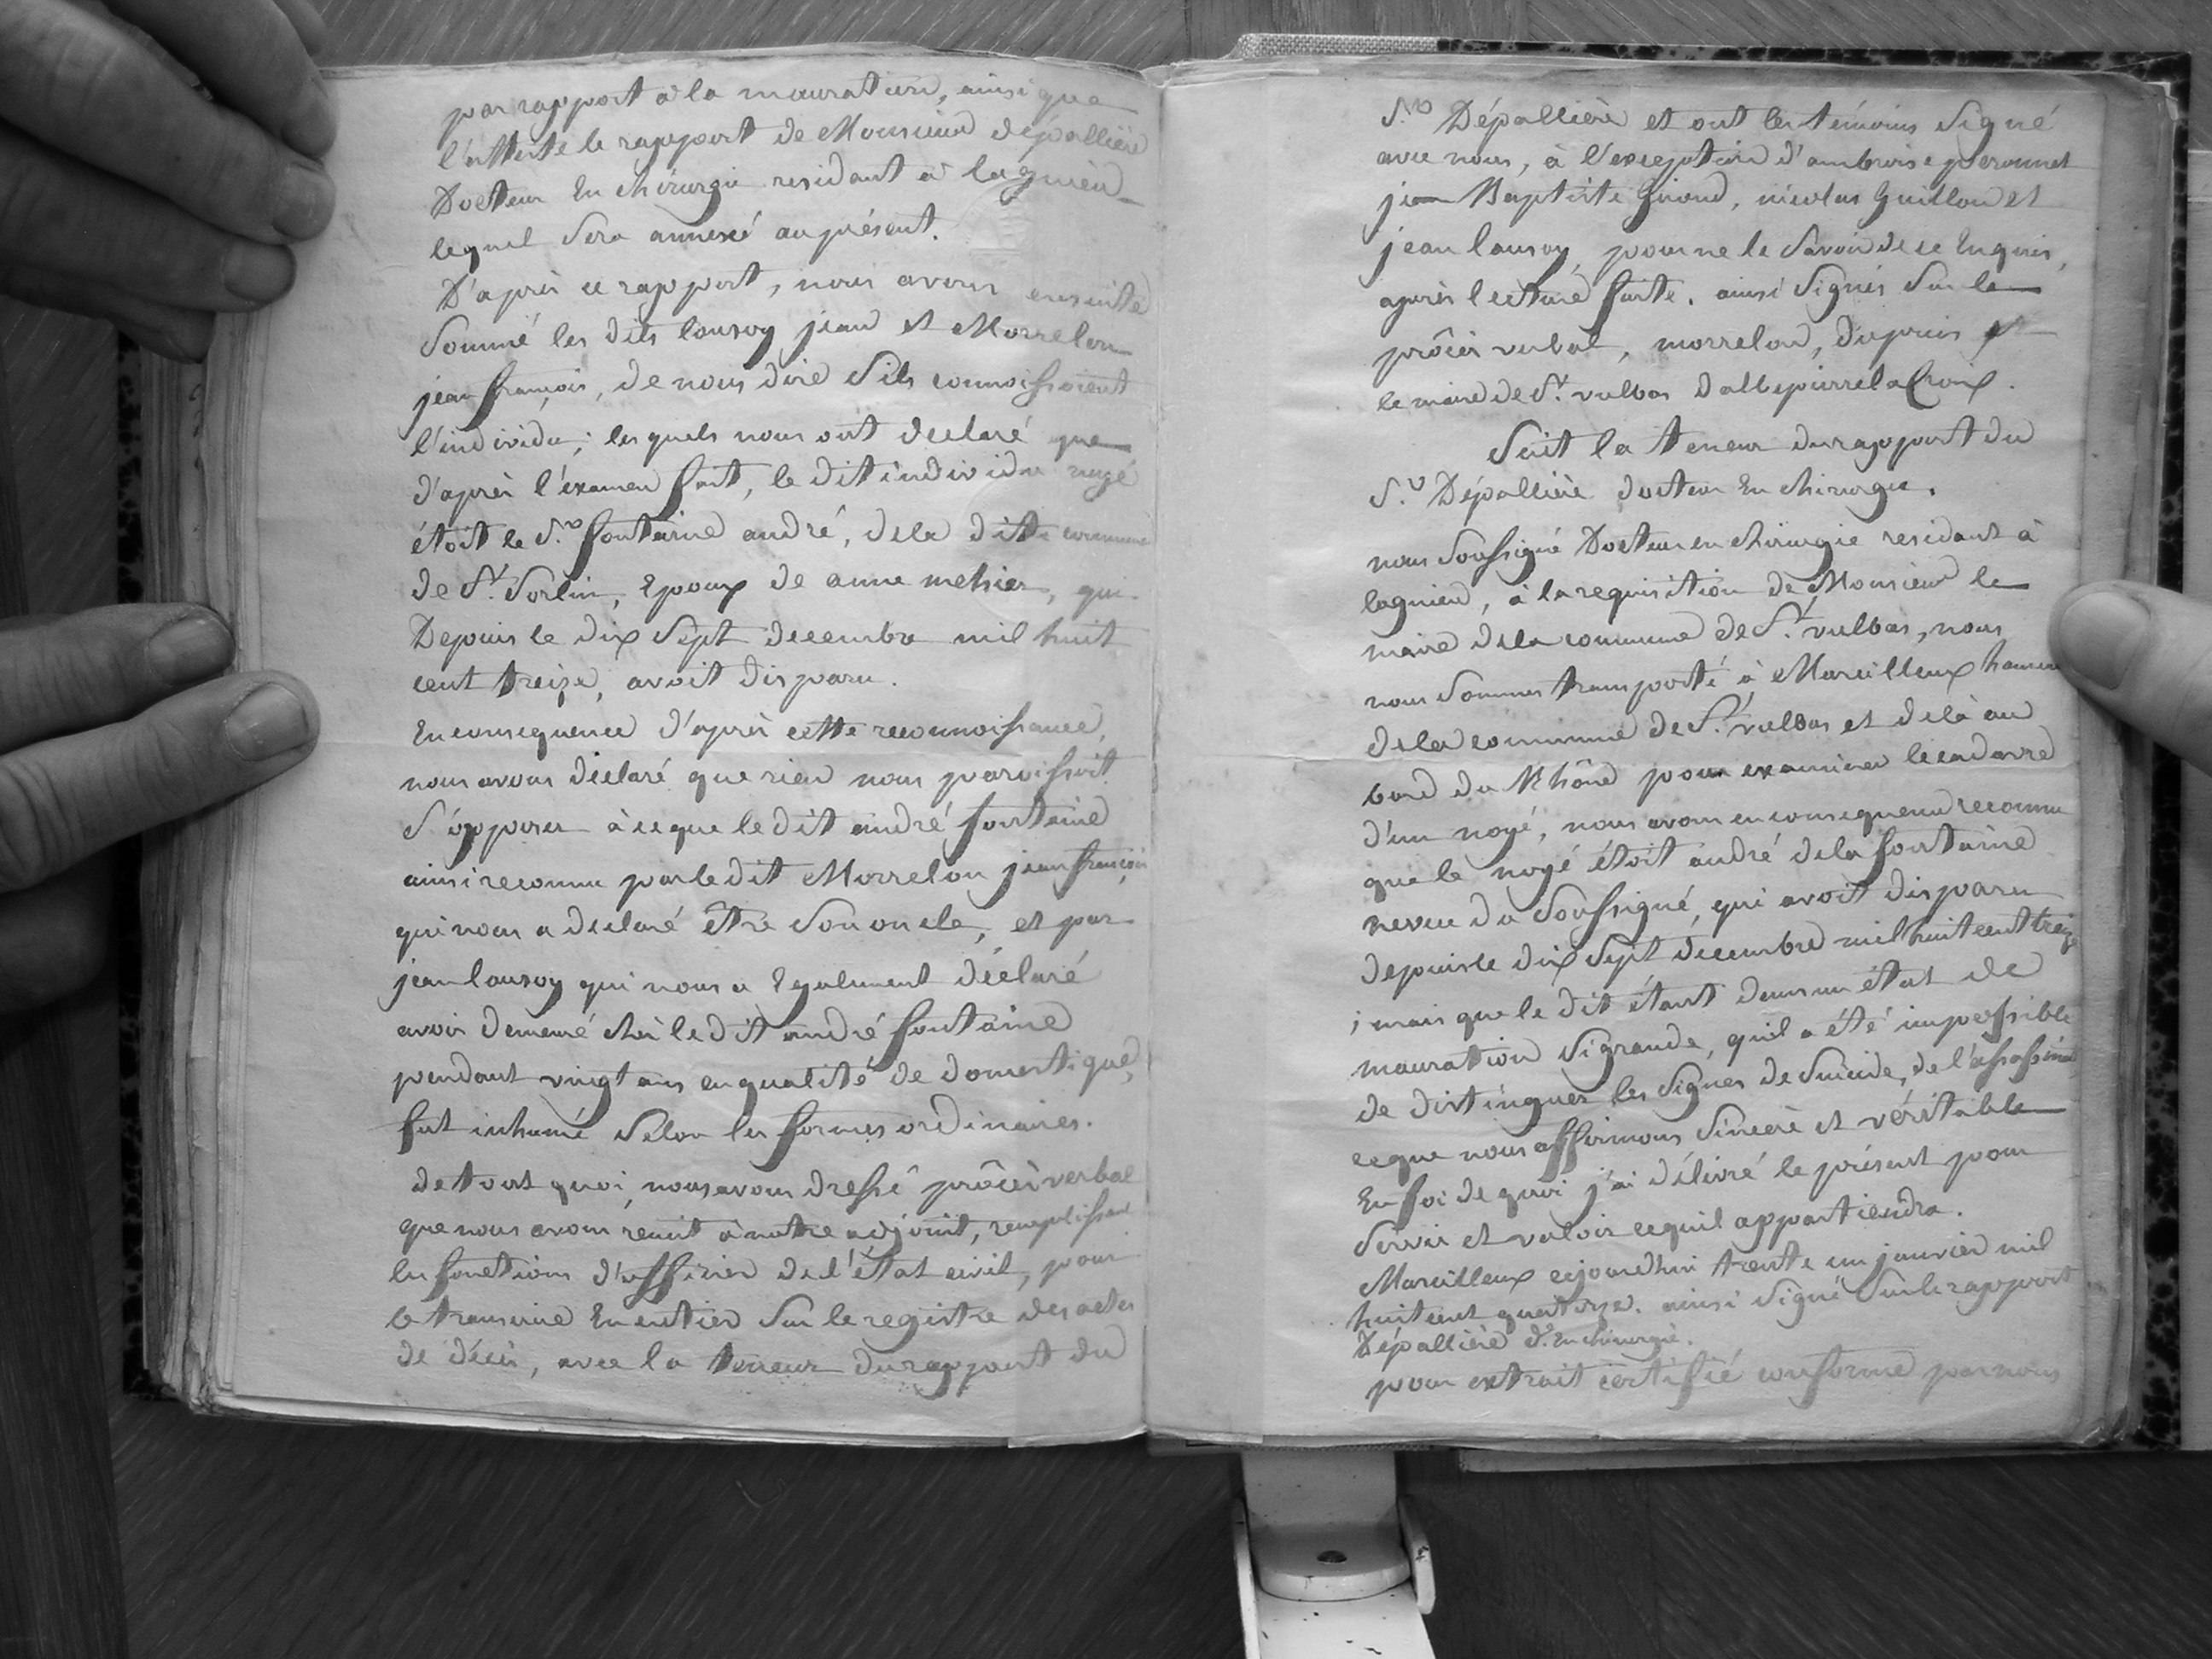 par rapport à la mauration, ainsi que
l'atteste le rapport de Monsieur dépallière
Docteur En chirurgie residant à lagnieu
lequel Sera annexé au présent.
D'après ce rapport, nous avons ensuite
Sommé les dits lausoy jean et Morrelon
jean françois, de nous dire S'ils connoissoient
l'individu; lesquels nous ont declaré que
d'après l'éxamen fait, le dit individu noyé
étoit le S.r fontaine andré, de la dite commune
de St. Sorlin, Epoux de anne metsier, qui
Depuis le dix Sept decembre mil huit
cent treize, avoit disparu.
En consequence d'après cette reconnoissance,
nous avons déclaré que rien nous paroissoit
S'opposer à ce que le dit andré fontaine
ainsi reconnu par le dit Morrelon jean françois
qui nous a declaré être Son oncle, et par
jean lausoy qui nous a Egalement déclaré
avoir demeuré chés le dit andré fontaine
pendant vingt ans en qualité de domestique,
fut inhumé Selon les formes ordinaires.
de tout quoi, nous avons dressé procès verbal
que nous avons remit à notre adjoint, remplissant
les fonctions d'officier de l'état civil, pour
le transcrire En entier Sur le registre des actes
de décès, avec la teneur du rapport du
S.r Dépallière et ont les témoins Signé
avec nous, à l'exception d'ambroise peronnet
jean Baptiste Giroud, nicolas Guillon et
jean lausoy, pour ne le Savoir de ce Enquis,
après lecture faite. ainsi Signés Sur le
procès verbal, morrelon, dupuis
le maire de St. vulbas dalbepierre laCroix.
Suit la teneur du rapport du
S.r Dépallière docteur En chirurgie.
nous Soussigné Docteur en chirurgie residant à
lagnieu, à la requisition de Monsieur le
maire de la commune de St. vulbas, nous
nous Sommes transporté à Marcilleux hameau
de la commune de St. vulbas et de là au
bord du Rhône pour examiner le cadavre
d'un noyé, nous avons en consequence reconnu
que le noyé étoit andré de la fontaine
neveu du Soussigné, qui avoit disparu
depuis le dix Sept decembre mil huit cent treize
; mais que le dit étant dans un état de
mauration Si grande, qu'il a été impossible
de distinguer les Signes de Suicide, de l'assassinat
ce que nous affirmons Sincère et véritable
En foi de quoi j'ai délivré le présent pour
Servir et valoir ce qu'il appartiendra.
Marcilleux cejourd'hui trente un janvier mil
huit cent quatorze. ainsi Signé Sur le rapport
Dépallière dr. En chirurgie.
pour extrait certifié conforme par nous